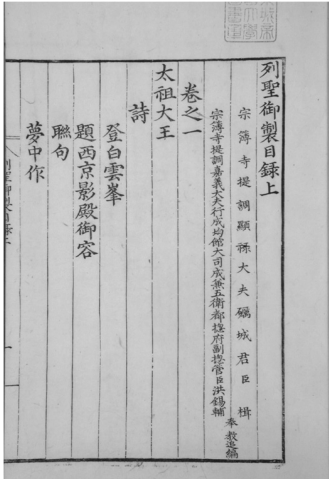 列聖御製目錄上
宗簿寺提調顯祿大夫礪城君臣楫
宗簿寺提調嘉義大夫行成均館大司成兼五衛都摠府副摠管臣洪錫輔
奉教追編
卷之一
太祖大王
詩
登白雲峯
題西京影殿御容
聯句
夢中作